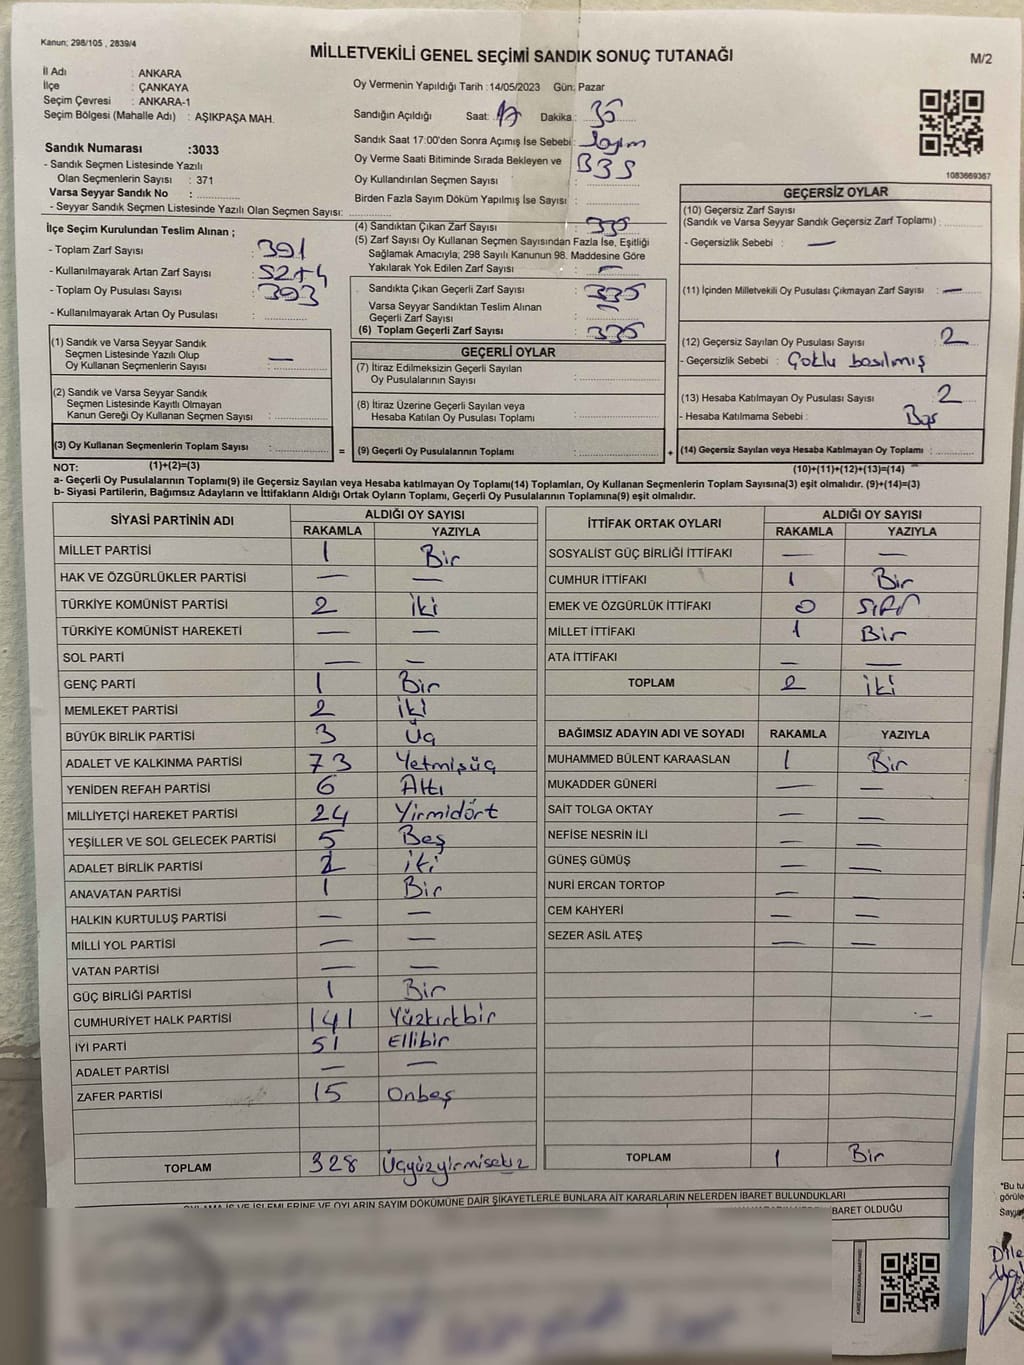 Kanun; 298/105 , 2839/4
MİLLETVEKİLİ GENEL SEÇİMİ SANDIK SONUÇ TUTANAĞI
M/2
İl Adı : ANKARA
İlçe : ÇANKAYA
Seçim Çevresi : ANKARA-1
Seçim Bölgesi (Mahalle Adı) : AŞIKPAŞA MAH.
Sandık Numarası :3033
- Sandık Seçmen Listesinde Yazılı
Olan Seçmenlerin Sayısı : 371
Varsa Seyyar Sandık No :
- Seyyar Sandık Seçmen Listesinde Yazılı Olan Seçmen Sayısı:
Oy Vermenin Yapıldığı Tarih :14/05/2023 Gün: Pazar
Sandığın Açıldığı Saat: 17 Dakika: 35
Sandık Saat 17:00'den Sonra Açımış İse Sebebi: Sayım
Oy Verme Saati Bitiminde Sırada Bekleyen ve
Oy Kullandırılan Seçmen Sayısı : 335
Birden Fazla Sayım Döküm Yapılmış İse Sayısı:
1083669367
İlçe Seçim Kurulundan Teslim Alınan ;
- Toplam Zarf Sayısı : 391
- Kullanılmayarak Artan Zarf Sayısı : 52+4
- Toplam Oy Pusulası Sayısı : 393
- Kullanılmayarak Artan Oy Pusulası :
(1) Sandık ve Varsa Seyyar Sandık
Seçmen Listesinde Yazılı Olup
Oy Kullanan Seçmenlerin Sayısı : —
(2) Sandık ve Varsa Seyyar Sandık
Seçmen Listesinde Kayıtlı Olmayan
Kanun Gereği Oy Kullanan Seçmen Sayısı :
(3) Oy Kullanan Seçmenlerin Toplam Sayısı :
=
(4) Sandıktan Çıkan Zarf Sayısı : 335
(5) Zarf Sayısı Oy Kullanan Seçmen Sayısından Fazla İse, Eşitliği
Sağlamak Amacıyla; 298 Sayılı Kanunun 98. Maddesine Göre
Yakılarak Yok Edilen Zarf Sayısı : —
Sandıkta Çıkan Geçerli Zarf Sayısı : 335
Varsa Seyyar Sandıktan Teslim Alınan
Geçerli Zarf Sayısı : —
(6) Toplam Geçerli Zarf Sayısı : 335
GEÇERLİ OYLAR
(7) İtiraz Edilmeksizin Geçerli Sayılan
Oy Pusulalarının Sayısı :
(8) İtiraz Üzerine Geçerli Sayılan veya
Hesaba Katılan Oy Pusulası Toplamı :
(9) Geçerli Oy Pusulalarının Toplamı :
+
GEÇERSİZ OYLAR
(10) Geçersiz Zarf Sayısı
(Sandık ve Varsa Seyyar Sandık Geçersiz Zarf Toplamı) :
- Geçersizlik Sebebi : —
(11) İçinden Milletvekili Oy Pusulası Çıkmayan Zarf Sayısı : —
(12) Geçersiz Sayılan Oy Pusulası Sayısı : 2
- Geçersizlik Sebebi : Çoklu basılmış
(13) Hesaba Katılmayan Oy Pusulası Sayısı : 2
- Hesaba Katılmama Sebebi : Boş
(14) Geçersiz Sayılan veya Hesaba Katılmayan Oy Toplamı :
NOT: (1)+(2)=(3) (10)+(11)+(12)+(13)=(14)
a- Geçerli Oy Pusulalarının Toplamı(9) ile Geçersiz Sayılan veya Hesaba katılmayan Oy Toplamı(14) Toplamları, Oy Kullanan Seçmenlerin Toplam Sayısına(3) eşit olmalıdır. (9)+(14)=(3)
b- Siyasi Partilerin, Bağımsız Adayların ve İttifakların Aldığı Ortak Oyların Toplamı, Geçerli Oy Pusulalarının Toplamına(9) eşit olmalıdır.
SİYASİ PARTİNİN ADI ALDIĞI OY SAYISI
RAKAMLA YAZIYLA
MİLLET PARTİSİ 1 Bir
HAK VE ÖZGÜRLÜKLER PARTİSİ — —
TÜRKİYE KOMÜNİST PARTİSİ 2 iki
TÜRKİYE KOMÜNİST HAREKETİ — —
SOL PARTİ — —
GENÇ PARTİ 1 Bir
MEMLEKET PARTİSİ 2 iki
BÜYÜK BİRLİK PARTİSİ 3 Üç
ADALET VE KALKINMA PARTİSİ 73 Yetmişüç
YENİDEN REFAH PARTİSİ 6 Altı
MİLLİYETÇİ HAREKET PARTİSİ 24 Yirmidört
YEŞİLLER VE SOL GELECEK PARTİSİ 5 Beş
ADALET BİRLİK PARTİSİ 2 iki
ANAVATAN PARTİSİ 1 Bir
HALKIN KURTULUŞ PARTİSİ — —
MİLLİ YOL PARTİSİ — —
VATAN PARTİSİ — —
GÜÇ BİRLİĞİ PARTİSİ 1 Bir
CUMHURİYET HALK PARTİSİ 141 Yüzkırkbir
İYİ PARTİ 51 Ellibir
ADALET PARTİSİ — —
ZAFER PARTİSİ 15 Onbeş
TOPLAM 328 Üçyüzyirmisekiz
İTTİFAK ORTAK OYLARI ALDIĞI OY SAYISI
RAKAMLA YAZIYLA
SOSYALİST GÜÇ BİRLİĞİ İTTİFAKI — —
CUMHUR İTTİFAKI 1 Bir
EMEK VE ÖZGÜRLÜK İTTİFAKI 0 SIFIR
MİLLET İTTİFAKI 1 Bir
ATA İTTİFAKI — —
TOPLAM 2 iki
BAĞIMSIZ ADAYIN ADI VE SOYADI RAKAMLA YAZIYLA
MUHAMMED BÜLENT KARAASLAN 1 Bir
MUKADDER GÜNERİ — —
SAİT TOLGA OKTAY — —
NEFİSE NESRİN İLİ — —
GÜNEŞ GÜMÜŞ — —
NURİ ERCAN TORTOP —
CEM KAHYERİ — —
SEZER ASİL ATEŞ — —
TOPLAM 1 Bir
İŞLEMLERİNE VE OYLARIN SAYIM DÖKÜMÜNE DAİR ŞİKAYETLERLE BUNLARA AİT KARARLARIN NELERDEN İBARET BULUNDUKLARI
İBARET OLDUĞU
*Bu tu
görüle